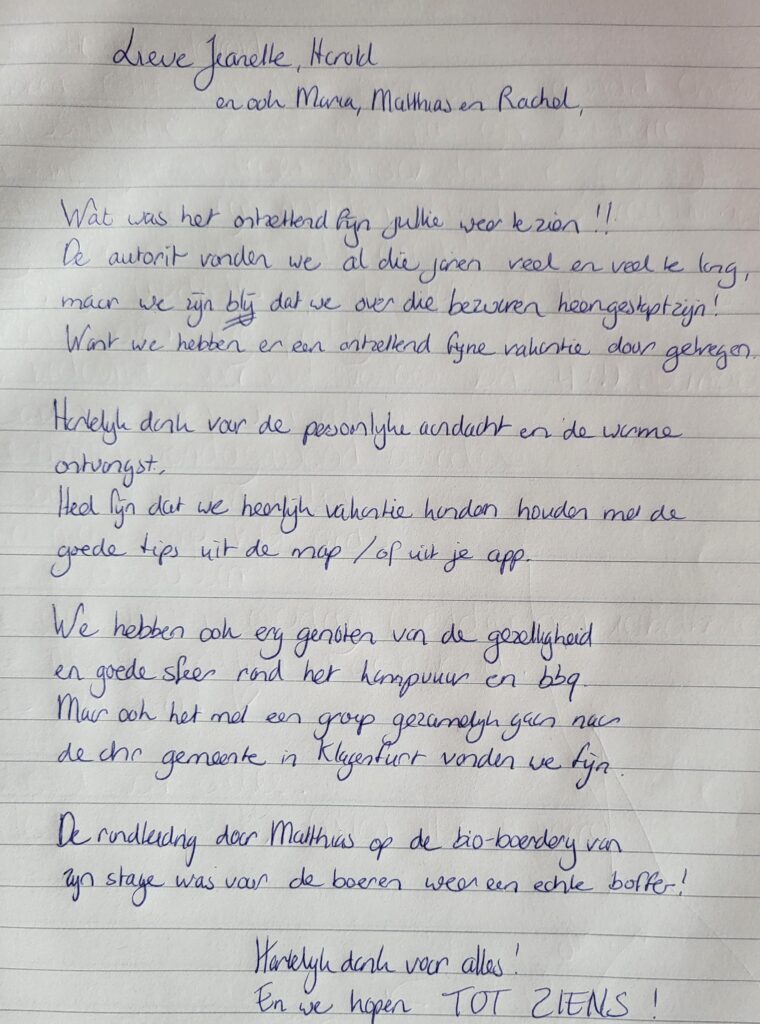 Lieve Jeanette, Harold
en ook Maria, Matthias en Rachel,
Wat was het ontzettend fijn jullie weer te zien!!
De autorit vonden we al die jaren veel en veel te lang,
maar we zijn blij dat we over die bezwaren heengestapt zijn!
Want we hebben er een ontzettend fijne vakantie door gekregen.
Hartelijk dank voor de persoonlijke aandacht en de warme
ontvangst.
Heel fijn dat we heerlijk vakantie konden houden met de
goede tips uit de map / of uit je app.
We hebben ook erg genoten van de gezelligheid
en goede sfeer rond het kampvuur en bbq.
Maar ook het met een groep gezamelijk gaan naar
de chr gemeente in Klagenfurt vonden we fijn.
De rondleiding door Matthias op de bio-boerderij van
zijn stage was voor de boeren weer een echte boffer!
Hartelijk dank voor alles!
En we hopen TOT ZIENS!